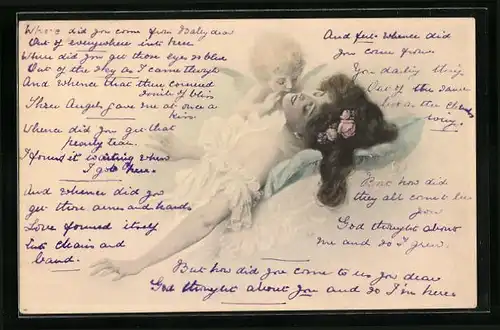 Where did you come from Baby dear
Out of everywhere into here
Where did you get those eyes so blue
Out of the sky as I came through
And whence that three cornered
smile of bliss
Three Angels gave me at once a
kiss
Whence did you get that
pearly tear
I found it waiting when
I got here.
And whence did you
get those arms and hands
Love formed itself
into chain and
band.
And feet whence did
you come from
You darling thing
Out of the same
box as the
wing.
But how did
they all come to be
you
God thought about
me and so I grew.
But how did you come to us you dear
God thought about you and so I'm here